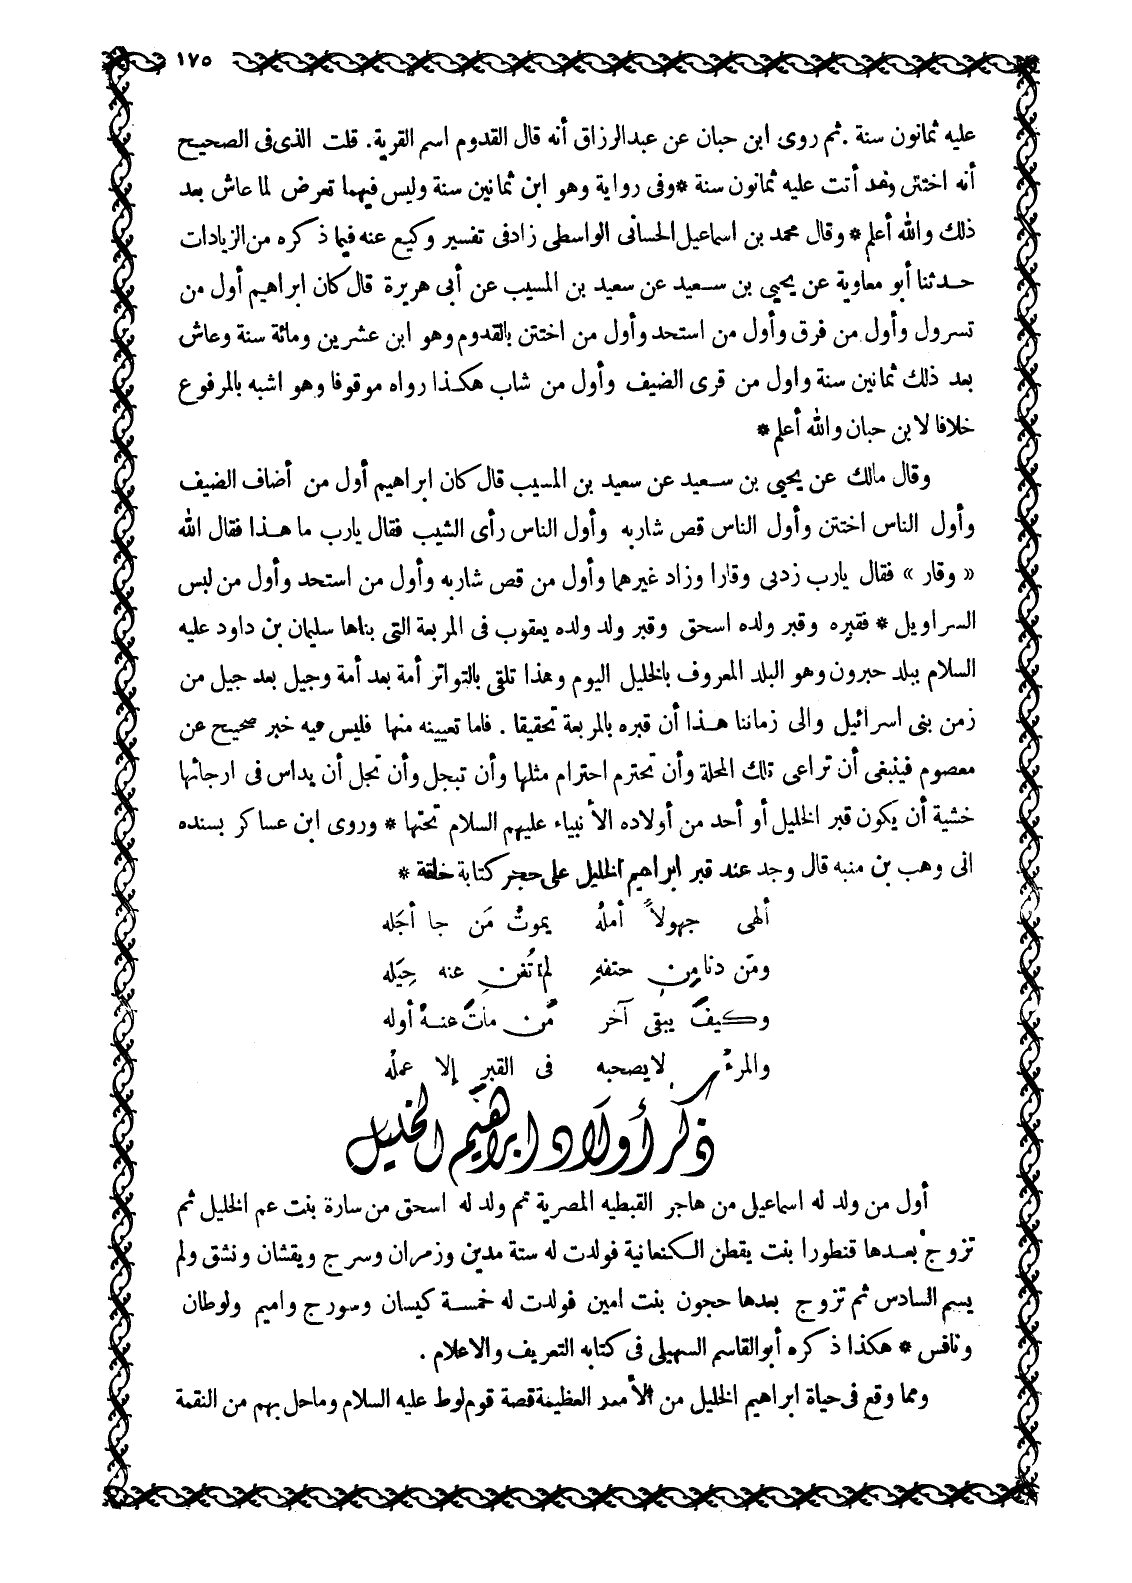 ١٧٥
عليه ثمانون سنة . ثم روى ابن حبان عن عبدالرزاق أنه قال القدوم اسم القرية . قلت الذى فى الصحيح
أنه اختتن وقد أتت عليه ثمانون سنة * وفى رواية وهو ابن ثمانين سنة وليس فيهما تعرض لما عاش بعد
ذلك والله أعلم * وقال محمد بن اسماعيل الحسانى الواسطى زادفى تفسير وكيع عنه فيما ذكره من الزيادات
حدثنا أبو معاوية عن يحيى بن سعيد عن سعيد بن المسيب عن أبى هريرة قال كان ابراهيم أول من
تسرول وأول من فرق وأول من استحد وأول من اختتن بالقدوم وهو ابن عشرين ومائة سنة وعاش
بعد ذلك ثمانين سنة واول من قرى الضيف وأول من شاب هكذا رواه موقوفا وهو اشبه بالمرفوع
خلافا لابن حبان والله أعلم *
وقال مالك عن يحيى بن سعيد عن سعيد بن المسيب قال كان ابراهيم أول من أضاف الضيف
وأول الناس اختتن وأول الناس قص شاربه وأول الناس رأى الشيب فقال يارب ما هذا فقال الله
« وقار » فقال يارب زدنى وقارا وزاد غيرهما وأول من قص شاربه وأول من استحد وأول من لبس
السراويل * فقبره وقبر ولده اسحق وقبر ولد ولده يعقوب فى المربعة التى بناها سليمان بن داود عليه
السلام ببلد حبرون وهو البلد المعروف بالخليل اليوم وهذا تلقى بالتواتر أمة بعد أمة وجيل بعد جيل من
زمن بنى اسرائيل والى زماننا هذا أن قبره بالمربعة تحقيقا . فاما تعيينه منها فليس فيه خبر صحيح عن
معصوم فينبغى أن تراعى تلك المحلة وأن تحترم احترام مثلها وأن تبجل وأن تجل أن يداس فى ارجائها
خشية أن يكون قبر الخليل أو أحد من أولاده الأنبياء عليهم السلام تحتها * وروى ابن عساكر بسنده
الى وهب بن منبه قال وجد عند قبر ابراهيم الخليل على حجر كتابة خلقة *
ألهى جهولاً أملهُ يموتُ مَن جا أجَله
ومَن دنا مِن حتفهِ لم تُغن عنه حِيَله
وكيفَ يبقى آخر مَّن ماتَ عنهُ أوله
والمرءُ لايصحبه فى القبرِ إلا عملُه
ذكر أولاد ابراهيم الخليل
أول من ولد له اسماعيل من هاجر القبطيه المصرية ثم ولد له اسحق من سارة بنت عم الخليل ثم
تزوج بعدها قنطورا بنت يقطن الكنعانية فولدت له ستة مدين وزمران وسرج ويقشان ونشق ولم
يسم السادس ثم تزوج بعدها حجون بنت امين فولدت له خمسة كيسان وسورج واميم ولوطان
ونافس * هكذا ذكره أبوالقاسم السهيلى فى كتابه التعريف والاعلام .
ومما وقع فى حياة ابراهيم الخليل من العظيمة قصة قوم لوط عليه السلام وماحل بهم من النقمة